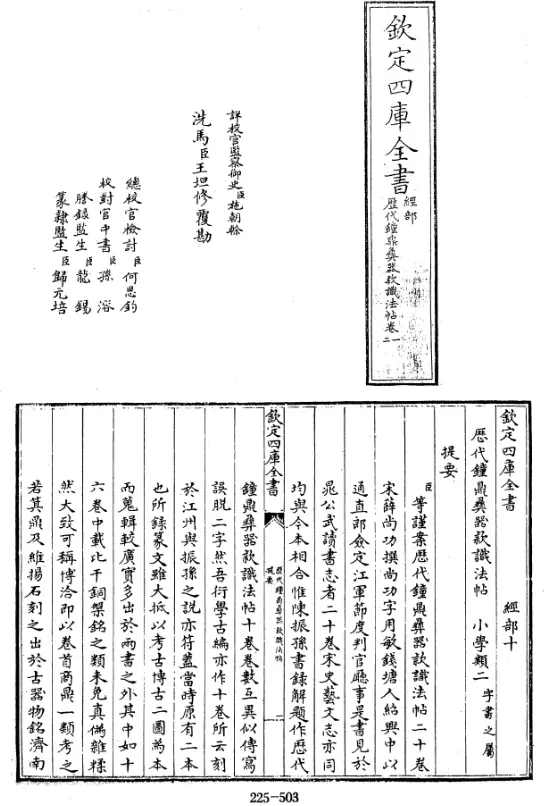 欽定四庫全書
經部
歷代鐘鼎彝器款識法帖卷一
二
詳校官監察御史臣施朝榦
洗馬臣王坦修覆勘
總校官檢討臣何思鈞
校對官中書臣孫溶
謄錄監生臣龍錫
篆隸監生臣歸元培
欽定四庫全書 經部十
歷代鐘鼎彝器款識法帖 小學類二字書之屬
提要
臣等謹案歷代鐘鼎彝器款識法帖二十卷
宋薛尚功撰尚功字用敏錢塘人紹興中以
通直郎僉定江軍節度判官廳事是書見於
晁公武讀書志者二十卷宋史藝文志亦同
均與今本相合惟陳振孫書錄解題作歷代
欽定四庫全書
歷代鐘鼎彝器款識法帖
提要
一
鐘鼎彝器款識法帖十卷卷數互異似傳寫
誤脫二字然吾衍學古編亦作十卷所云刻
於江州與振孫之說亦符蓋當時原有二本
也所錄篆文雖大抵以考古博古二圖為本
而蒐輯較廣實多出於兩書之外其中如十
六卷中載比干銅槃銘之類未免真偽雜糅
然大致可稱博洽即以卷首商鼎一類考之
若箕鼎及維揚石刻之出於古器物銘濟南
225-503